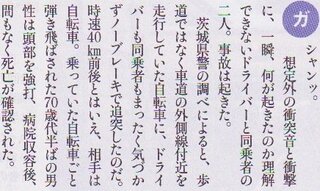 ガシャンッ。
想定外の衝突音と衝撃
に、一瞬、何が起きたのか理解
できないドライバーと同乗者の
二人。事故は起きた。
茨城県警の調べによると、歩
道ではなく車道の外側線付近を
走行していた自転車に、ドライ
バーも同乗者もまったく気づか
ずノーブレーキで追突したのだ。
時速40㎞前後とはいえ、相手は
自転車。乗っていた自転車ごと
弾き飛ばされた70歳代半ばの男
性は頭部を強打、病院収容後、
間もなく死亡が確認された。